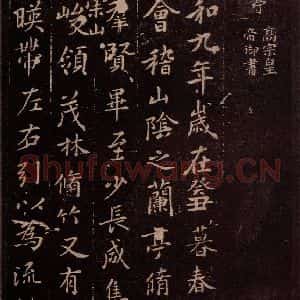 高宗皇
帝御書
和九年歲在癸丑暮春
會稽山陰之蘭亭脩
羣賢畢至少長咸集
崇山
峻領茂林脩竹又有
暎帶左右引以為流
Shufawang.CN